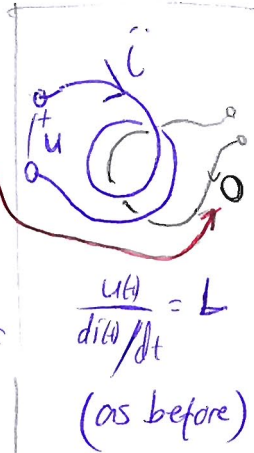 i
+
u
0
u(t)
di(t)/dt
= L
(as before)